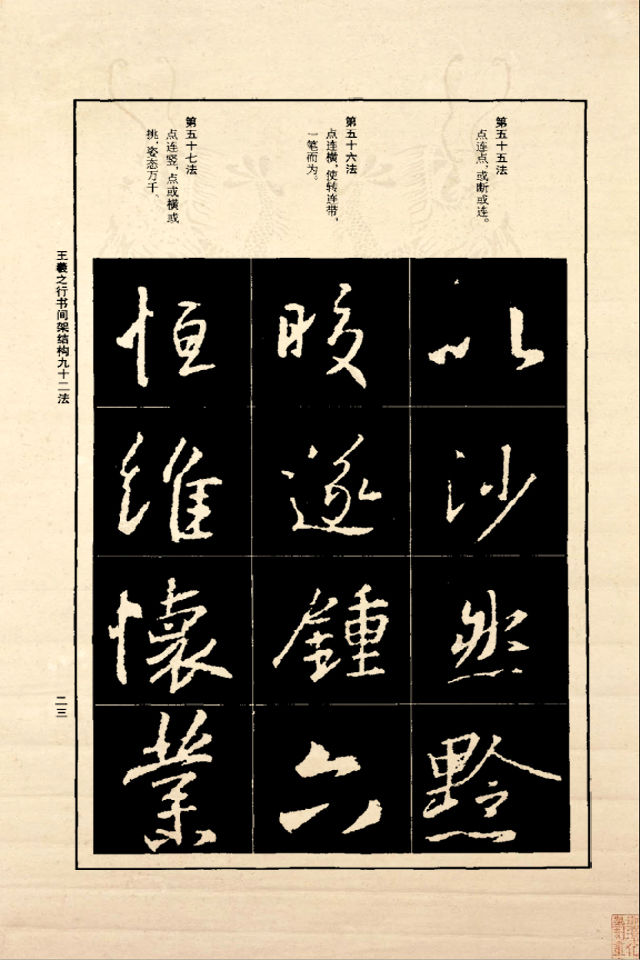 第五十五法
点连点,或断或连。
第五十六法
点连横,使转连带,
一笔而为。
第五十七法
点连竖,点或横或
挑,姿态万千、
以
沙
然
黔
遂
鍾
六
恒
維
懷
業
王羲之行书间架结构九十二法
二三